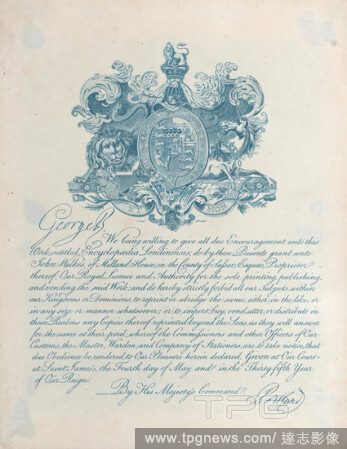 George R.
We being willing to give all due Encouragement unto this
Work entitled, Encyclopædia Londinensis, do by these Presents grant unto
John Wilkes, of Milland House, in the County of Sussex, Esquire, Proprietor
thereof, Our Royal Licence and Authority for the sole printing, publishing,
and vending the said Work, and do hereby strictly forbid all our Subjects, within
our Kingdoms or Dominions, to reprint or abridge the same, either in the like, or
in any size or manner whatsoever; or to import, buy, vend, utter or distribute in
these Realms any Copies thereof reprinted beyond the Seas, as they will answer
for the same at their peril, whereof the Commissioners and other Officers of Our
Customs, the Master, Warden, and Company of Stationers, are to take notice, that
due Obedience be rendered to Our Pleasure herein declared. Given at Our Court
at Saint James's, the Fourth day of May, and in the Thirty-fifth Year
of Our Reign.
By His Majesty's Command
Portland
TPG
www.tpgnews.com / 達志影像